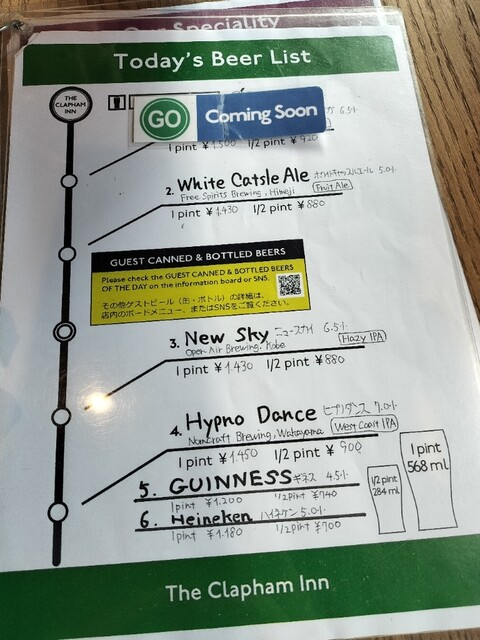 Our Speciality
Today's Beer List
THE
CLAPHAM
INN
GO Coming Soon
6.5%
1 pint ¥1,500 1/2 pint ¥920
2. White Catsle Ale ホワイトキャッスルエール 5.0%
Free Spirits Brewing, Himeji Fruit Ale
1 pint ¥1,430 1/2 pint ¥880
GUEST CANNED & BOTTLED BEERS
Please check the GUEST CANNED & BOTTLED BEERS
OF THE DAY on the information board or SNS.
その他ゲストビール(缶・ボトル)の詳細は、
店内のボードメニュー、またはSNSをご覧ください。
3. New Sky ニュースカイ 6.5%
Open Air Brewing, Kobe Hazy IPA
1 pint ¥1,430 1/2 pint ¥880
4. Hypno Dance ヒプノダンス 7.0%
Nomcraft Brewing, Wakayama West Coast IPA
1 pint ¥1,450 1/2 pint ¥900
5. GUINNESS ギネス 4.5%
1 pint ¥1,200 1/2 pint ¥740
6. Heineken ハイネケン 5.0%
1 pint ¥1,180 1/2 pint ¥700
1/2 pint
284 ml
1 pint
568 ml
The Clapham Inn